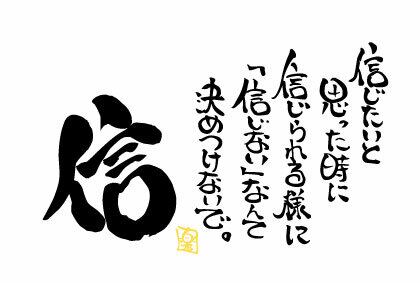 信じたいと
思った時に
信じられる様に
「信じない」なんて
決めつけないで。
信